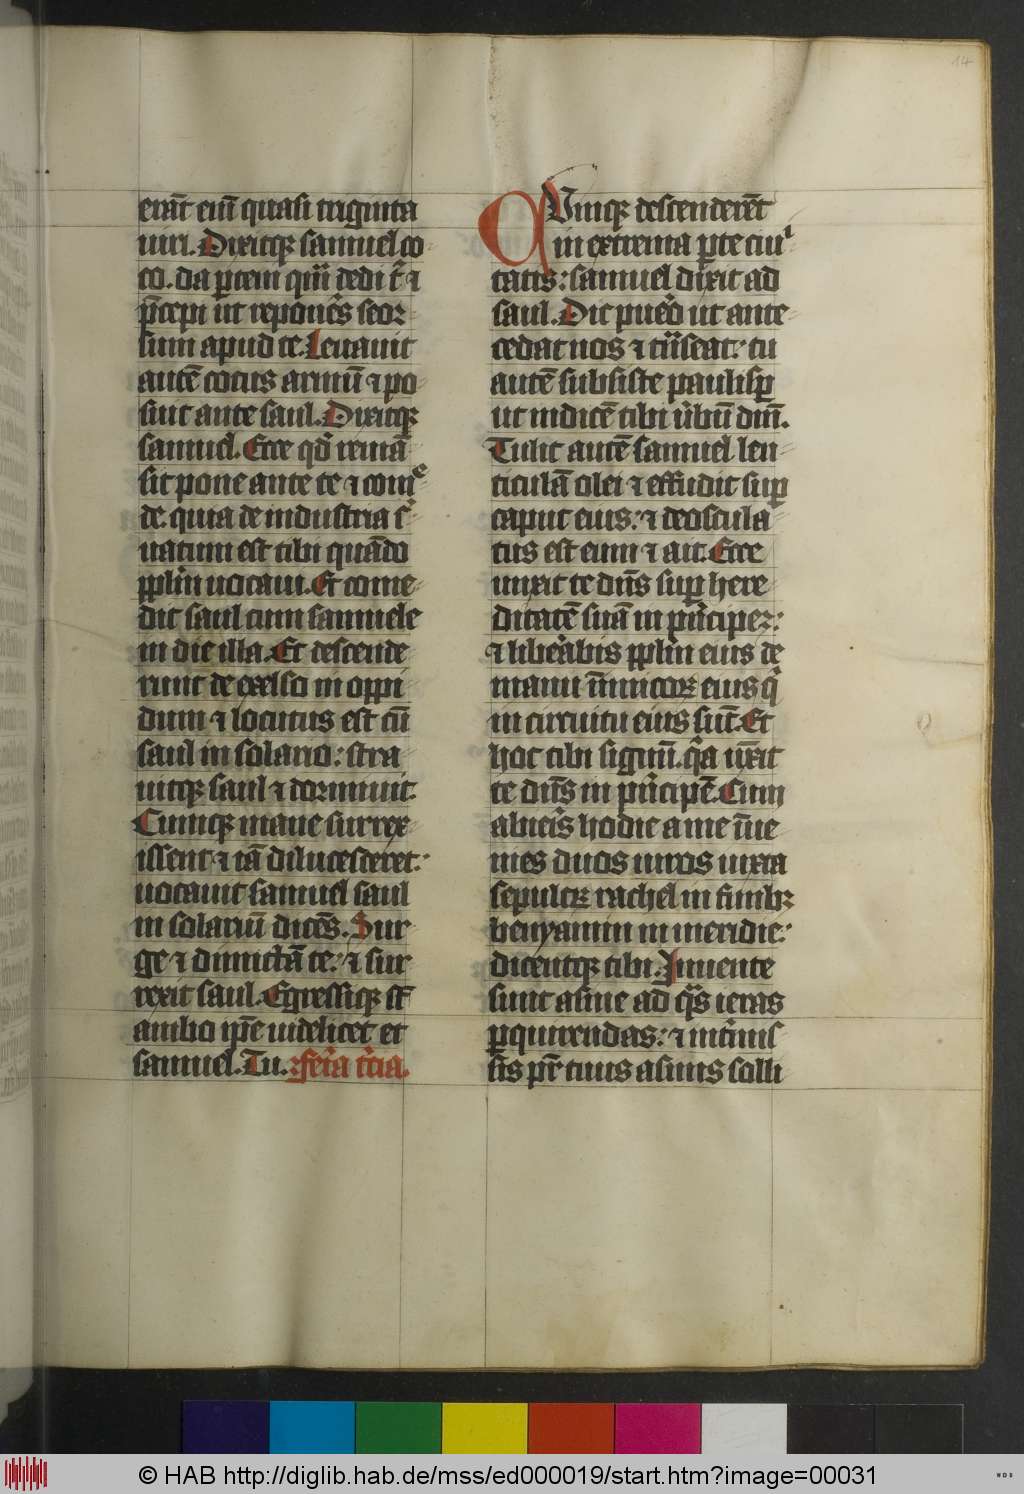 14
erāt eni͞ quasi triginta
uiri. Dixitqꝫ samuel co-
co. da ꝑtem quā dedi t̄ ⁊
p̄cepi ut reponēs seor-
sum apud te. Leuauit
autē cocus armū ⁊ po-
suit ante saul. Dixitqꝫ
samuel. Ecce qd̄ remā-
sit pone ante te ⁊ come-
de. quia de industria s̾-
uatum est tibi quādo
pp̄lm uocaui. Et come-
dit saul cum samuele
in die illa. Et descende-
runt de excelso in oppi
dum ⁊ locutus est cū
saul in solario: stra
uitqꝫ saul ⁊ dormiuit.
Cumqꝫ mane surrex-
issent ⁊ iā dilucesceret:
uocauit samuel saul
in solariū dicēs. Sur
ge ⁊ dimittā te: ⁊ sur
rexit saul. Egressiqꝫ st̄
ambo ip̄e uidelicet et
samuel. Tu. feria t̾cia.
CVmqꝫ descenderēt
in extrema ꝑte ciui
tatis: samuel dixit ad
saul. Dic puero ut ante-
cedat nos ⁊ t̾nseat: tu
autē subsiste paulisꝑ
ut indicē tibi ūbū dn̄i.
Tulit autē samuel len-
ticulā olei ⁊ effudit suꝑ
caput eius: ⁊ deoscula-
tus est eum ⁊ ait. Ecce
unxit te dn̄s suꝑ here-
ditatē suā in pͥncipeꝫ:
⁊ liberabis pp̄lm eius de
manu īnimicoꝝ eius qͥ
in circuitu eius sūt. Et
hoc tibi signū. qͣ unxit
te dn̄s in pͥncipē. Cum
abieris hodie a me īue-
nies duos uiros iuxta
sepulcꝝ rachel in finibꝫ
benyamin in meridie:
dicentqꝫ tibi. Inuente
sunt asine ad qͣs ieras
ꝑquirendas: ⁊ int̾mis
sis pr̄ tuus asinis solli
© HAB http://diglib.hab.de/mss/ed000019/start.htm?image=00031